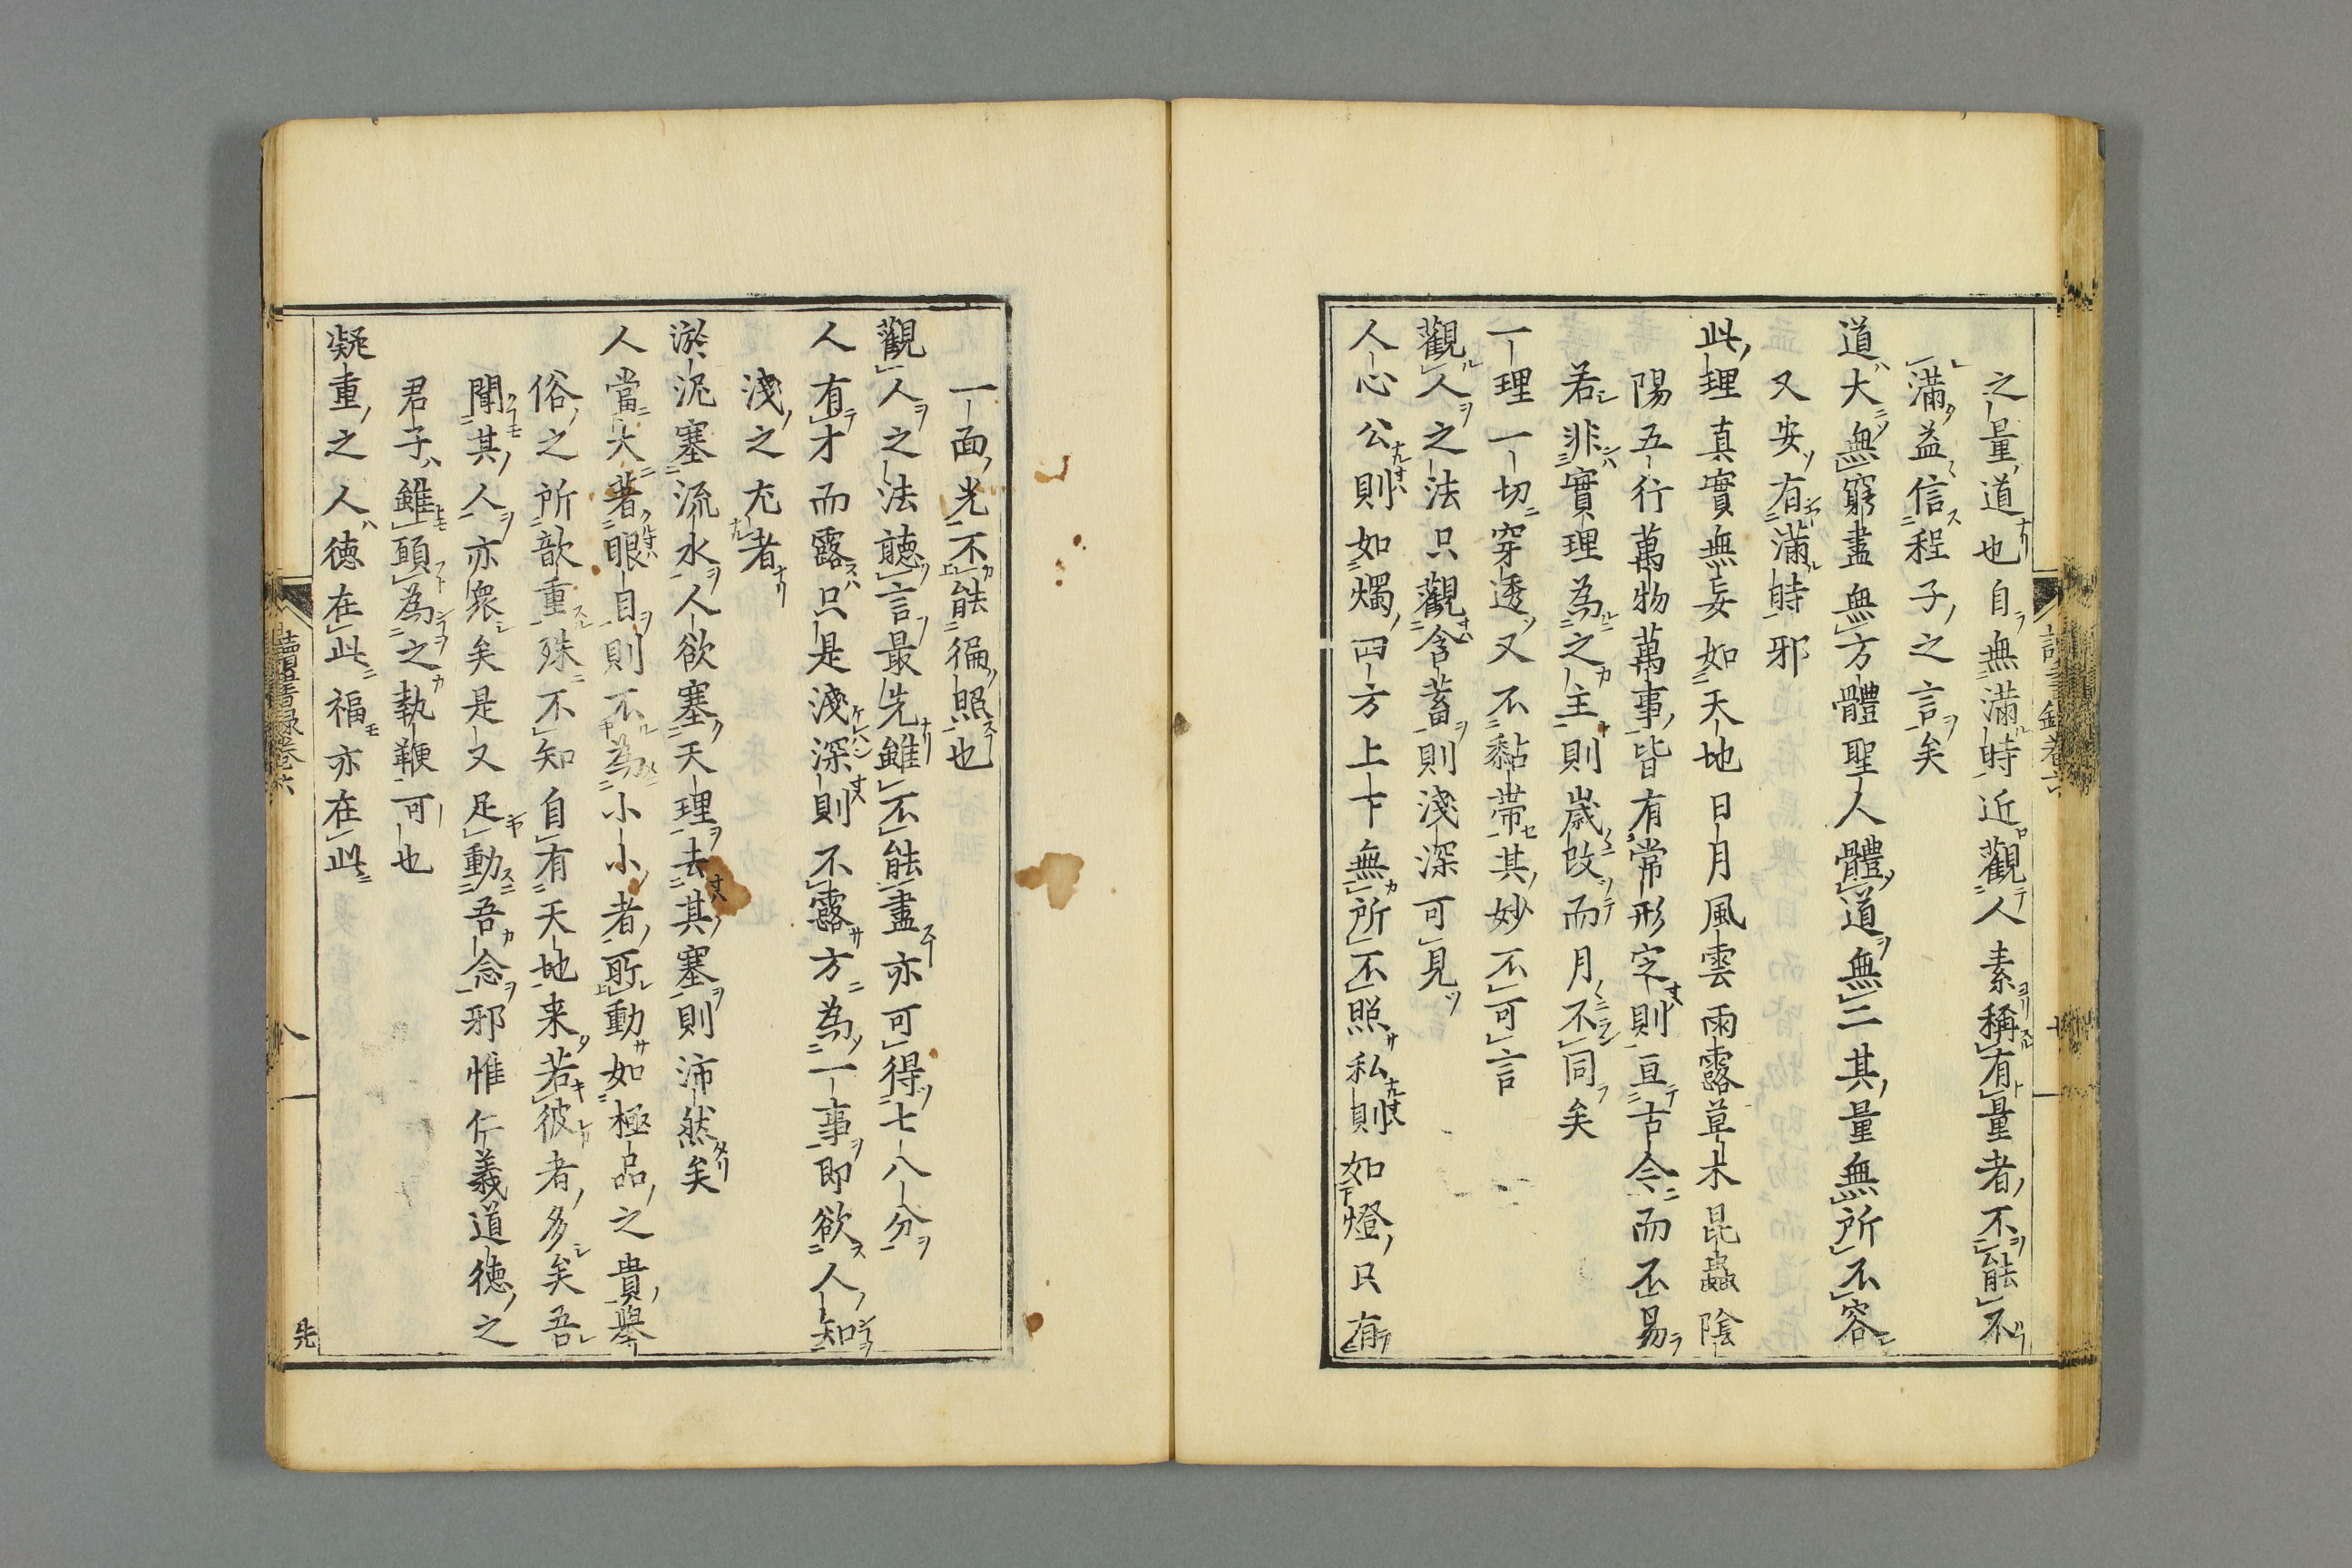 之量道也自無滿時近觀人素稱有量者不能不
滿益信程子之言矣
道大無窮盡無方體聖人體道無二其量無所不容
又安有滿時邪
此理真實無妄如天地日月風雲雨露草木昆蟲陰
陽五行萬物萬事皆有常形定則亘古今而不易
若非實理為之主則歲改而月不同矣
一理一切穿透又不黏帶其妙不可言
觀人之法只觀含蓄則淺深可見
人心公則如燭四方上下無所不照私則如燈只有
一面光不能徧照也
觀人之法聽言最先雖不能盡亦可得七八分
人有才而露只是淺深則不露方為一事即欲人知
淺之尤者
淤泥塞流水人欲塞天理去其塞則沛然矣
人當大著眼目則不為小小者所動如極品之貴舉
俗之所歆重殊不知自有天地来若彼者多矣吾
聞其人亦衆矣是又足動吾念邪惟仁義道德之
君子雖願為之執鞭可也
凝重之人德在此福亦在此
讀書録卷六